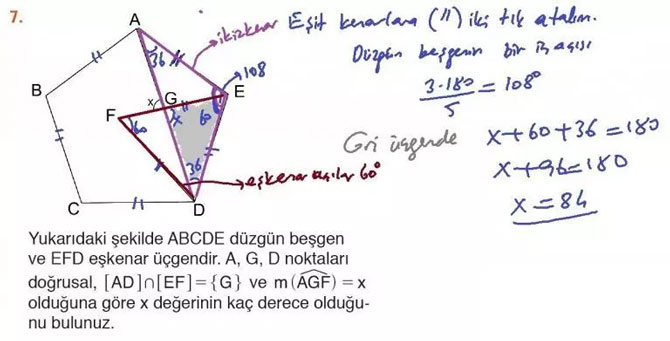 7.
A
B
C
D
E
F
G
x
36
108
60
x
60
36
ikizkenar
Eşit kenarlara (11) iki tık atalım.
Düzgün beşgenin bir iç açısı
3.180
5
= 108°
Gri üçgende
x+60+36=180
x+96=180
x=84
eşkenar açılar 60°
Yukarıdaki şekilde ABCDE düzgün beşgen
ve EFD eşkenar üçgendir. A, G, D noktaları
doğrusal, [AD]∩[EF]={G} ve m(AGF) = x
olduğuna göre x değerinin kaç derece olduğu-
nu bulunuz.